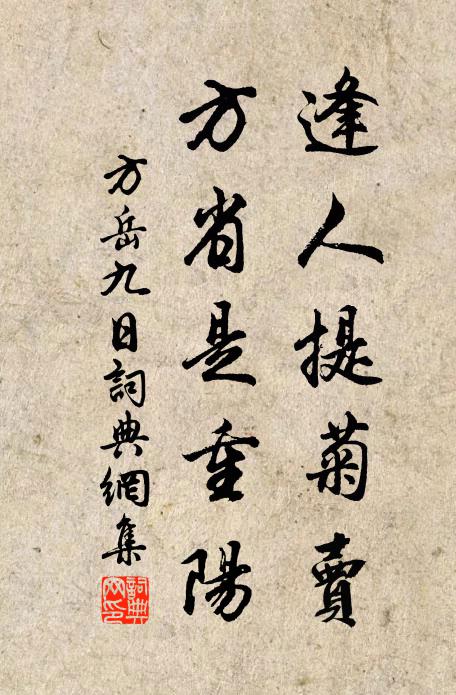 逢人提菊賣
方省是重陽
方岳九日詞典網集
詞典
网印